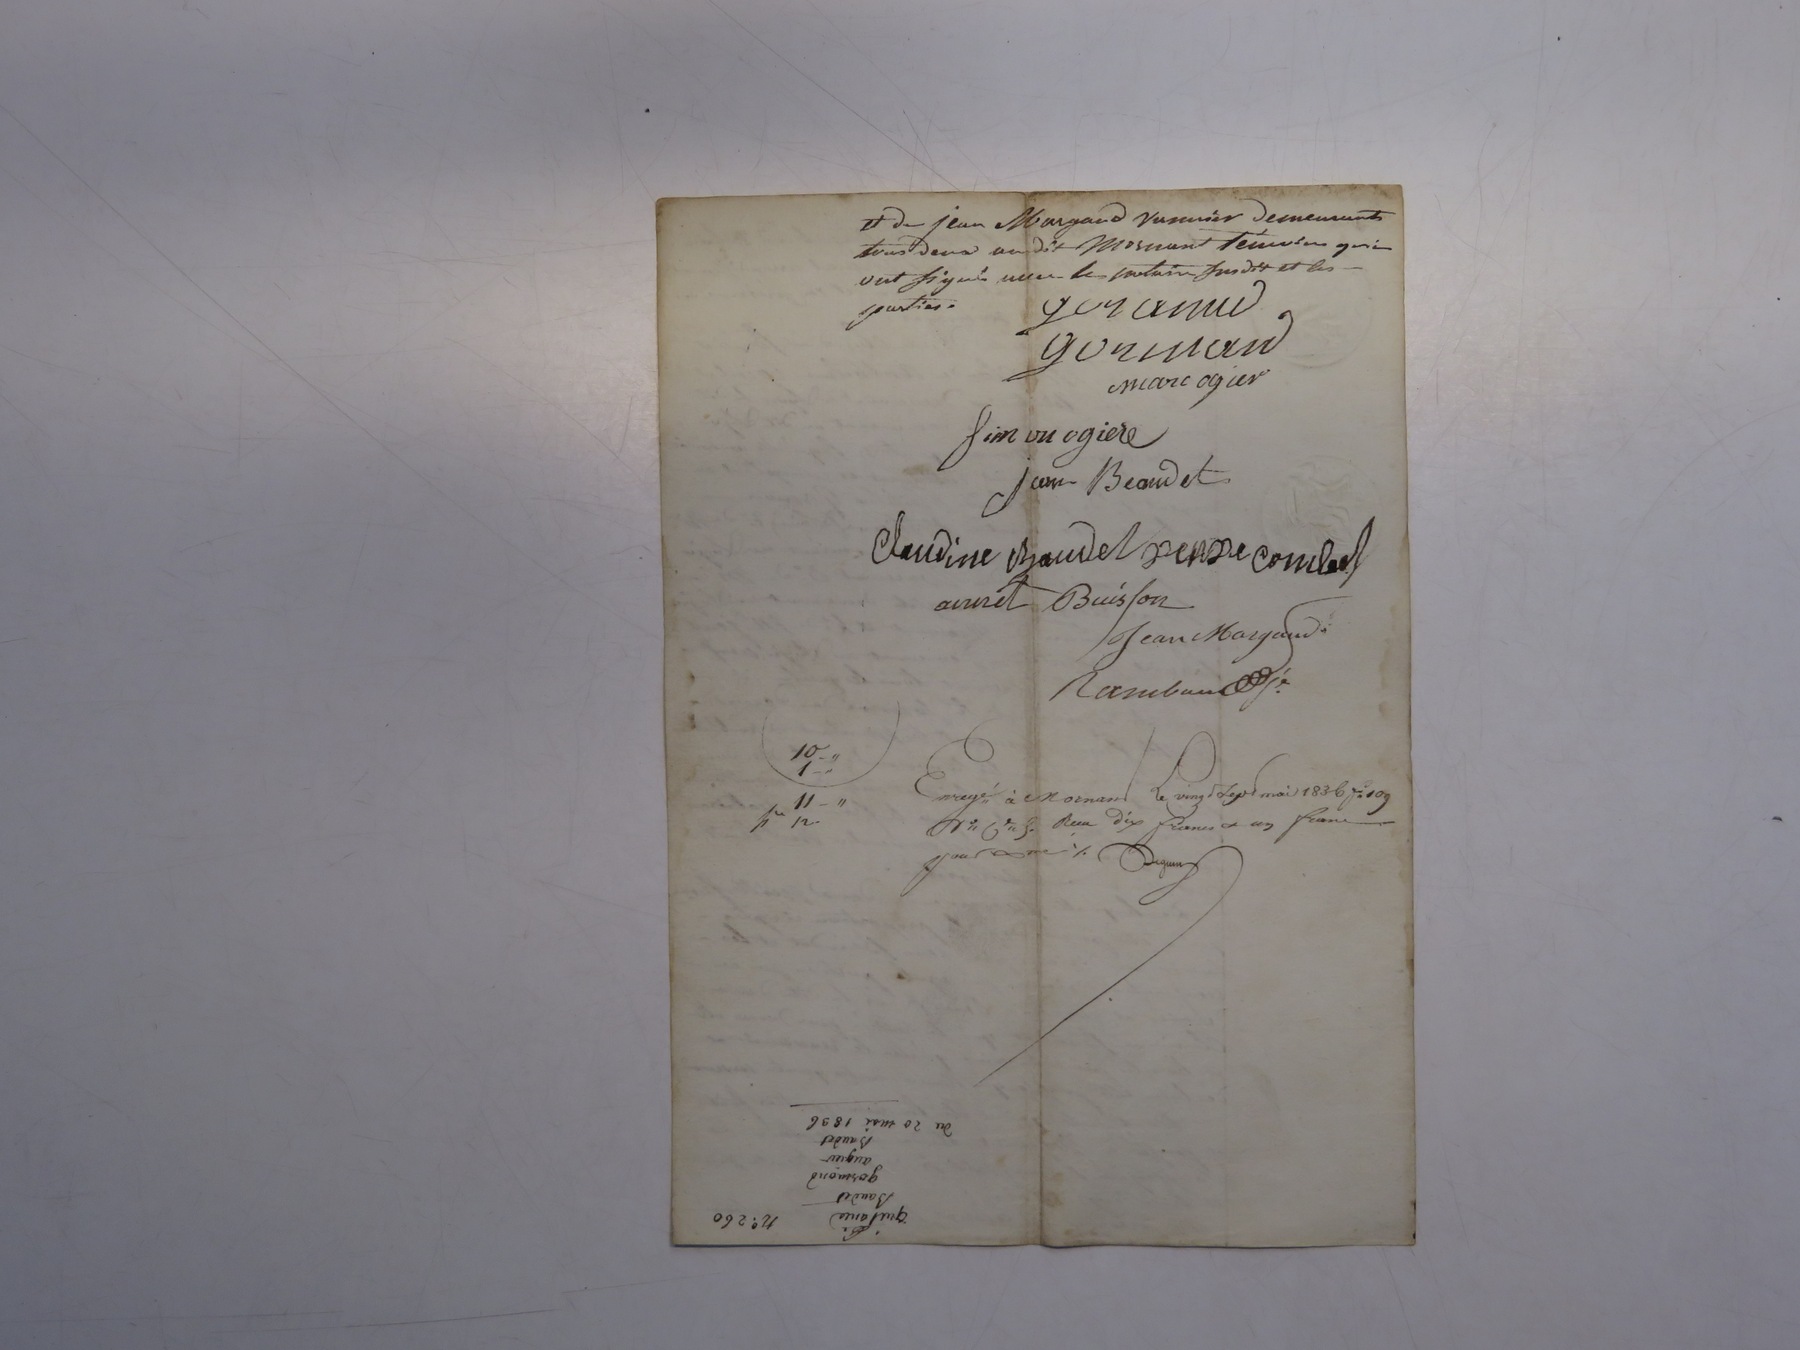 et de jean Morgaud vannier demeurants
tous deux au dit Mornant témoins qui
ont signés avec le notaire susdit et les
parties.
gormand
gormand
marc ogier
simon ogiere
jean Beaudet
Claudine Baudet veuve combet
Buisson
Jean Morgaud
Rambaud
10 - "
1 - "
11 - "
Enregé à Mornant Le vingt sept mai 1836 fo 109
Reçu dix francs et un franc
pour
No. 260
quitance
Baudet
gormond
augier
Baudet
du 20 mai 1836